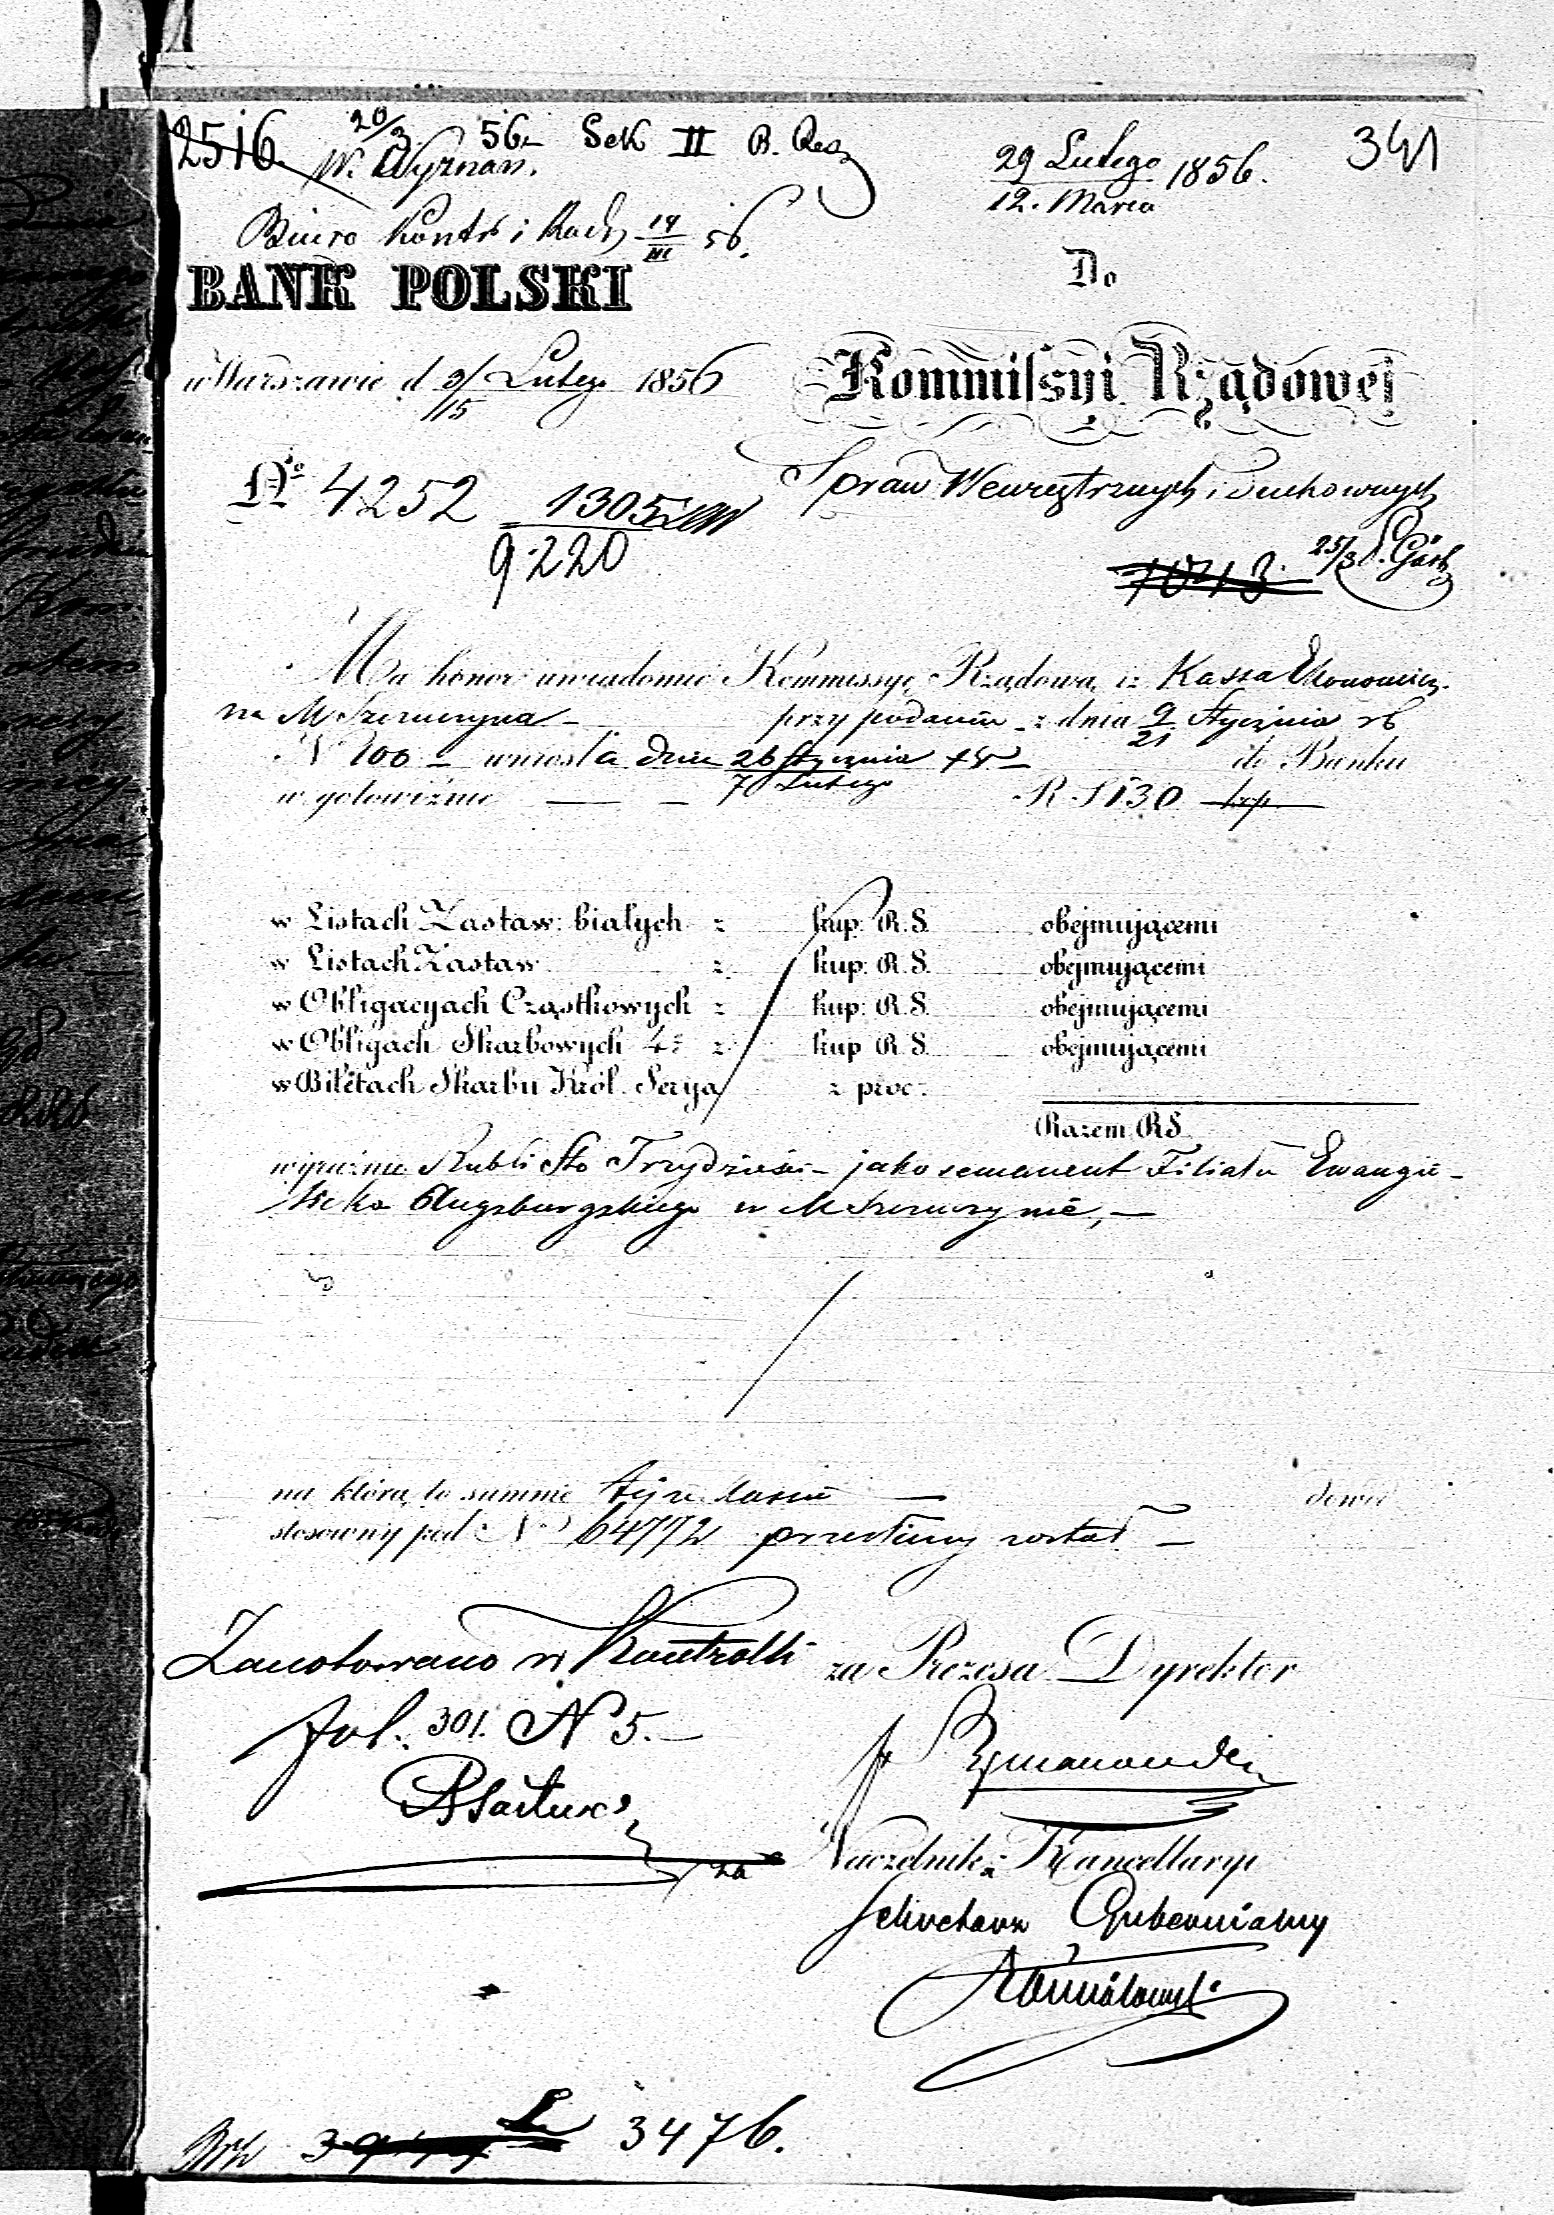 2516. 20/3 56 Sek II B. Resz
W. Wyznan.
29 Lutego 1856.
12. Marca
341
Biuro Kontr i Rach 14/III 56.
BANK POLSKI
Do
w Warszawie d 3/15 Lutego 1856
Kommissyi Rządowej
No 4252
Spraw Wewnętrznych i Duchownych
1305
9220
25/3
Ma honor uwiadomić Kommissyę Rządową iż Kassa Ekonomicz.
na M Szczuczyna przy podaniu z dnia 9/21 Stycznia rb
N 100 wniosła dnia 26 Stycznia do Banku
7 Lutego
w gotowiźnie R S 130 kop
w Listach Zastaw: białych z kup: R. S. obejmującemi
w Listach Zastaw z kup: R. S. obejmującemi
w Obligacyach Cząstkowych z kup: R. S. obejmującemi
w Obligach Skarbowych 4 z kup R S. obejmującemi
w Biletach Skarbu Król. Serya z proc:
Razem RS
wyraźnie Rubli Sto Trzydzieści jako remanent Filiału Ewangie-
licko Augsburgskiego w M Szczuczynie,
na którą to summę tejże kassie dowód
stosowny pod No 64772 przesłany został
Zanotowano w Kontrolli
za Prezesa Dyrektor
fol: 301. N 5.
Szymanowski
za Naczelnik Kancellaryi
Sekretarz Gubernialny
3476.